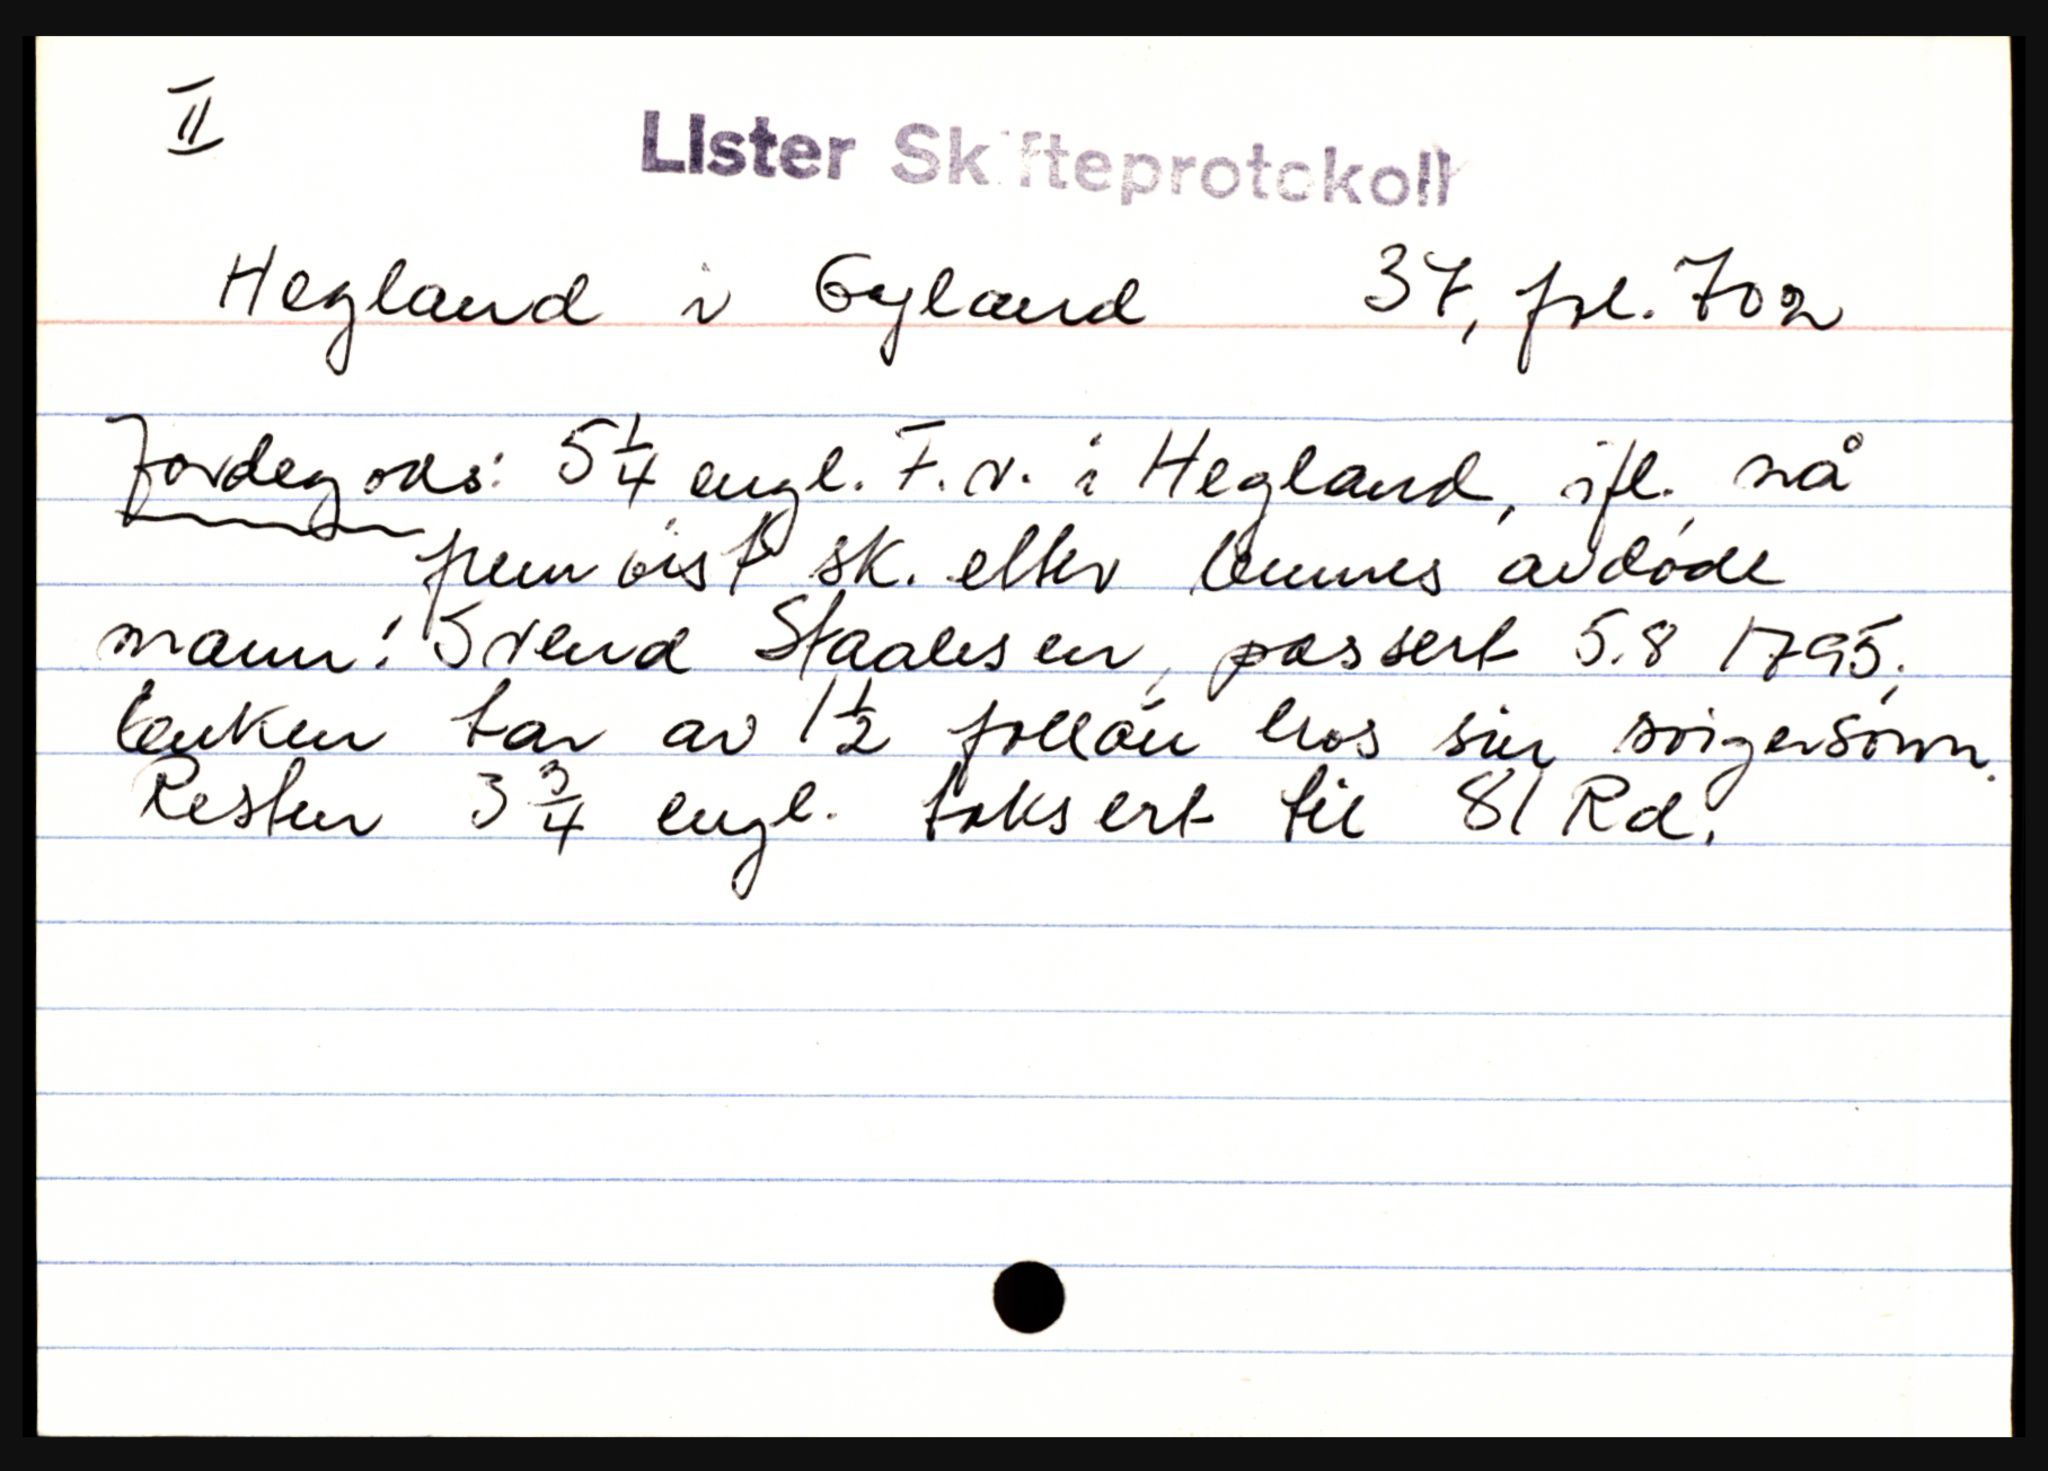 II
Lister Skifteprotokoll
Hegland i Gyland 37, fol. 702
Jordegods: 5 1/4 engl. F.v. i Hegland, ifl. nå
fremvist sk. etter hennes avdøde
mann: Svend Staalesen, passert 5.8 1795,
enken har av 1 1/2 follau hos sin svigersønn.
Resten 3 3/4 engl. taksert til 81 Rd.